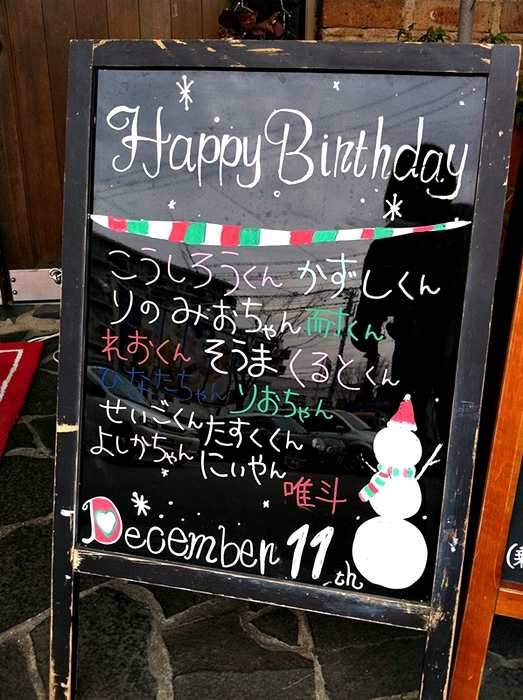 Happy Birthday
こうしろうくん かずしくん
りの みおちゃん 耐たくん
れおくん そうま くるとくん
ひなたちゃん りおちゃん
せいごくん たすくくん
よしかちゃん にいやん
唯斗
December 11th